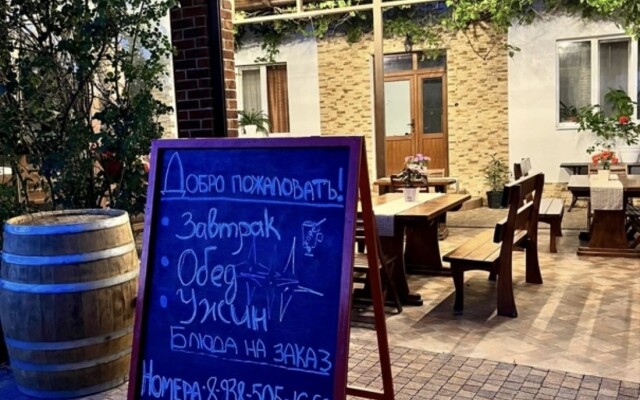 Добро пожаловать!
• Завтрак
• Обед
• Ужин
Блюда на заказ
Номера: 8-938-505-